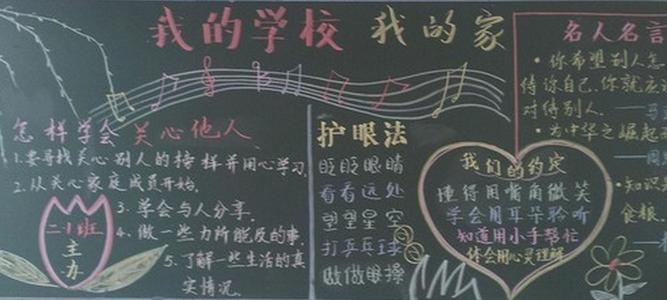 我的学校 我的家
怎样学会关心他人
1.要寻找关心别人的榜样并用心学习
2.从关心家庭成员开始.
3.学会与人分享.
4.做一些力所能及的事.
5.了解一些生活的真
实情况.
二·1班
主
办
护眼法
眨眨眼睛
看看远处
望望星空
打乒乓球
做做眼操
我们的约定
懂得用嘴角微笑
学会用耳朵聆听
知道用小手帮忙
体会用心灵理解
名人名言
·你希望别人怎
待你自己,你就应
对待别人.
·为中华之崛起
·知识是
食粮